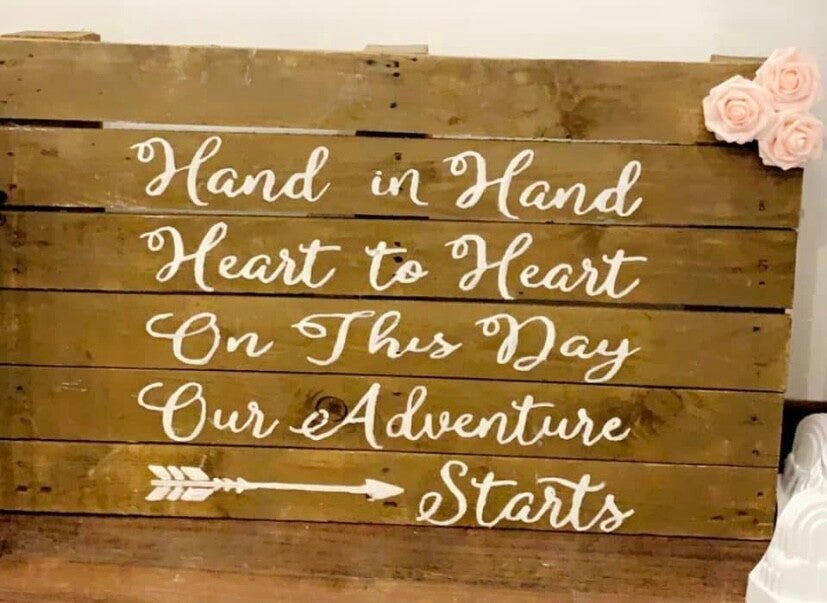 Hand in Hand
Heart to Heart
On This Day
Our Adventure
Starts